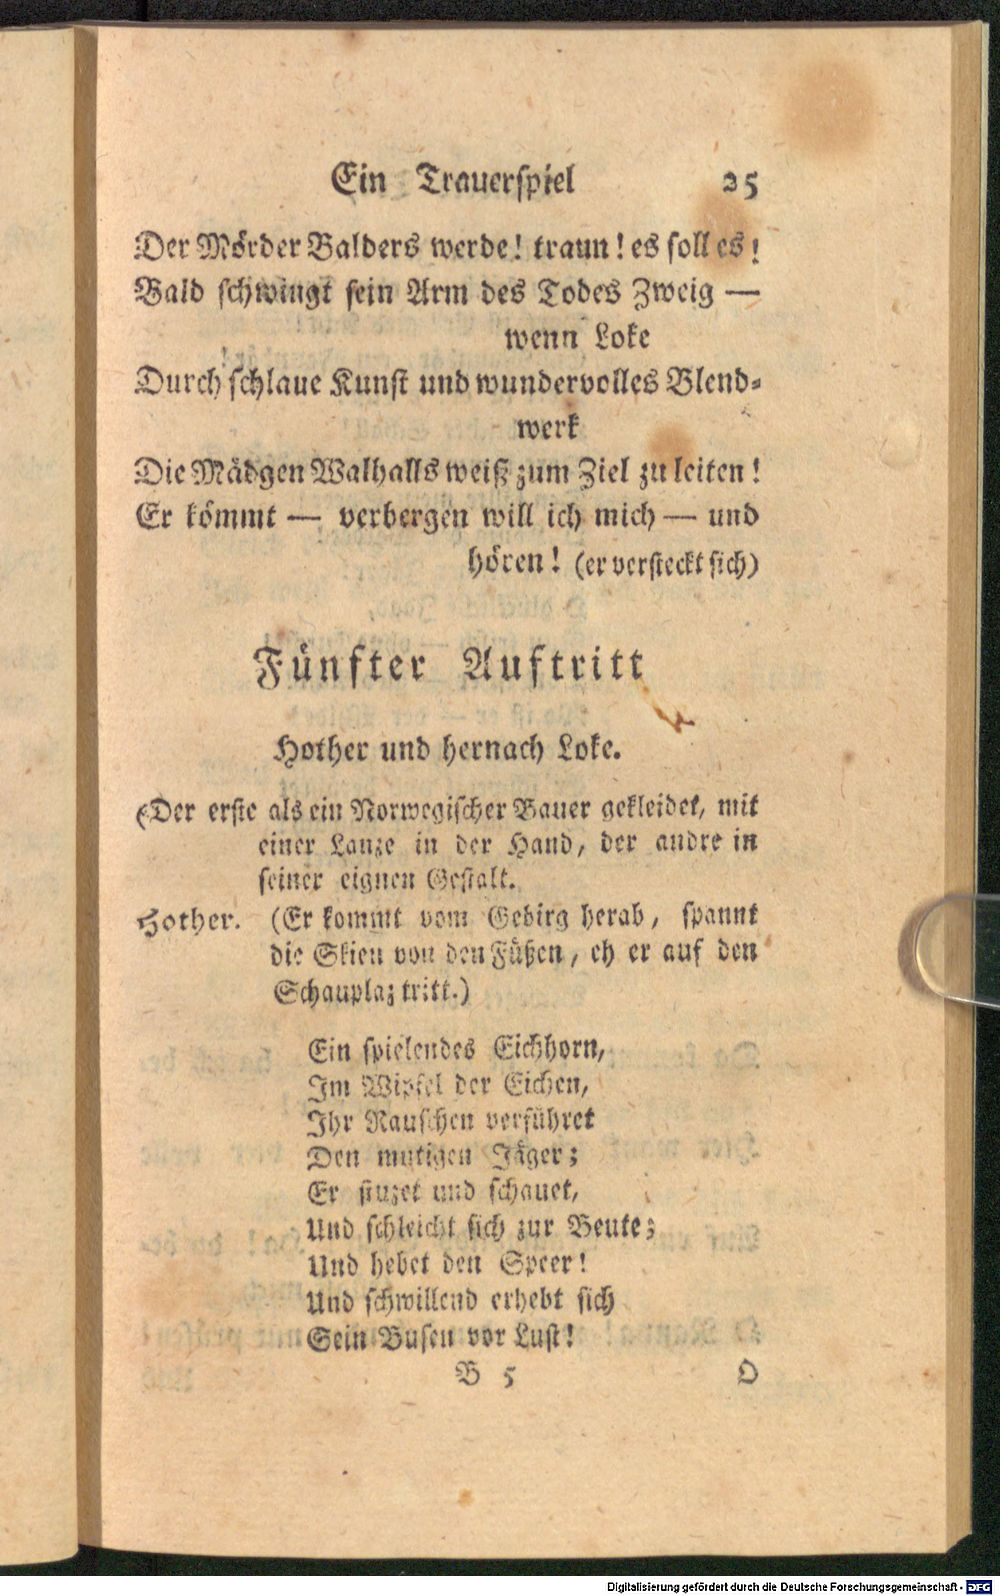 Ein Trauerspiel 25
Der Mörder Balders werde! traun! es soll es!
Bald schwingt sein Arm des Todes Zweig —
wenn Loke
Durch schlaue Kunst und wundervolles Blend-
werk
Die Mädgen Walhalls weiß zum Ziel zu leiten!
Er kömmt — verbergen will ich mich — und
hören! (er versteckt sich)
Fünfter Auftritt
Hother und hernach Loke.
(Der erste als ein Norwegischer Bauer gekleidet, mit
einer Lanze in der Hand, der andre in
seiner eignen Gestalt.
Hother. (Er kommt vom Gebirg herab, spannt
die Skien von den Füßen, eh er auf den
Schauplaz tritt.)
Ein spielendes Eichhorn,
Im Wipfel der Eichen,
Ihr Rauschen verführet
Den mutigen Jäger;
Er stuzet und schauet,
Und schleicht sich zur Beute;
Und hebet den Speer!
Und schwillend erhebt sich
Sein Busen vor Lust!
B 5 O
Digitalisierung gefördert durch die Deutsche Forschungsgemeinschaft - DFG